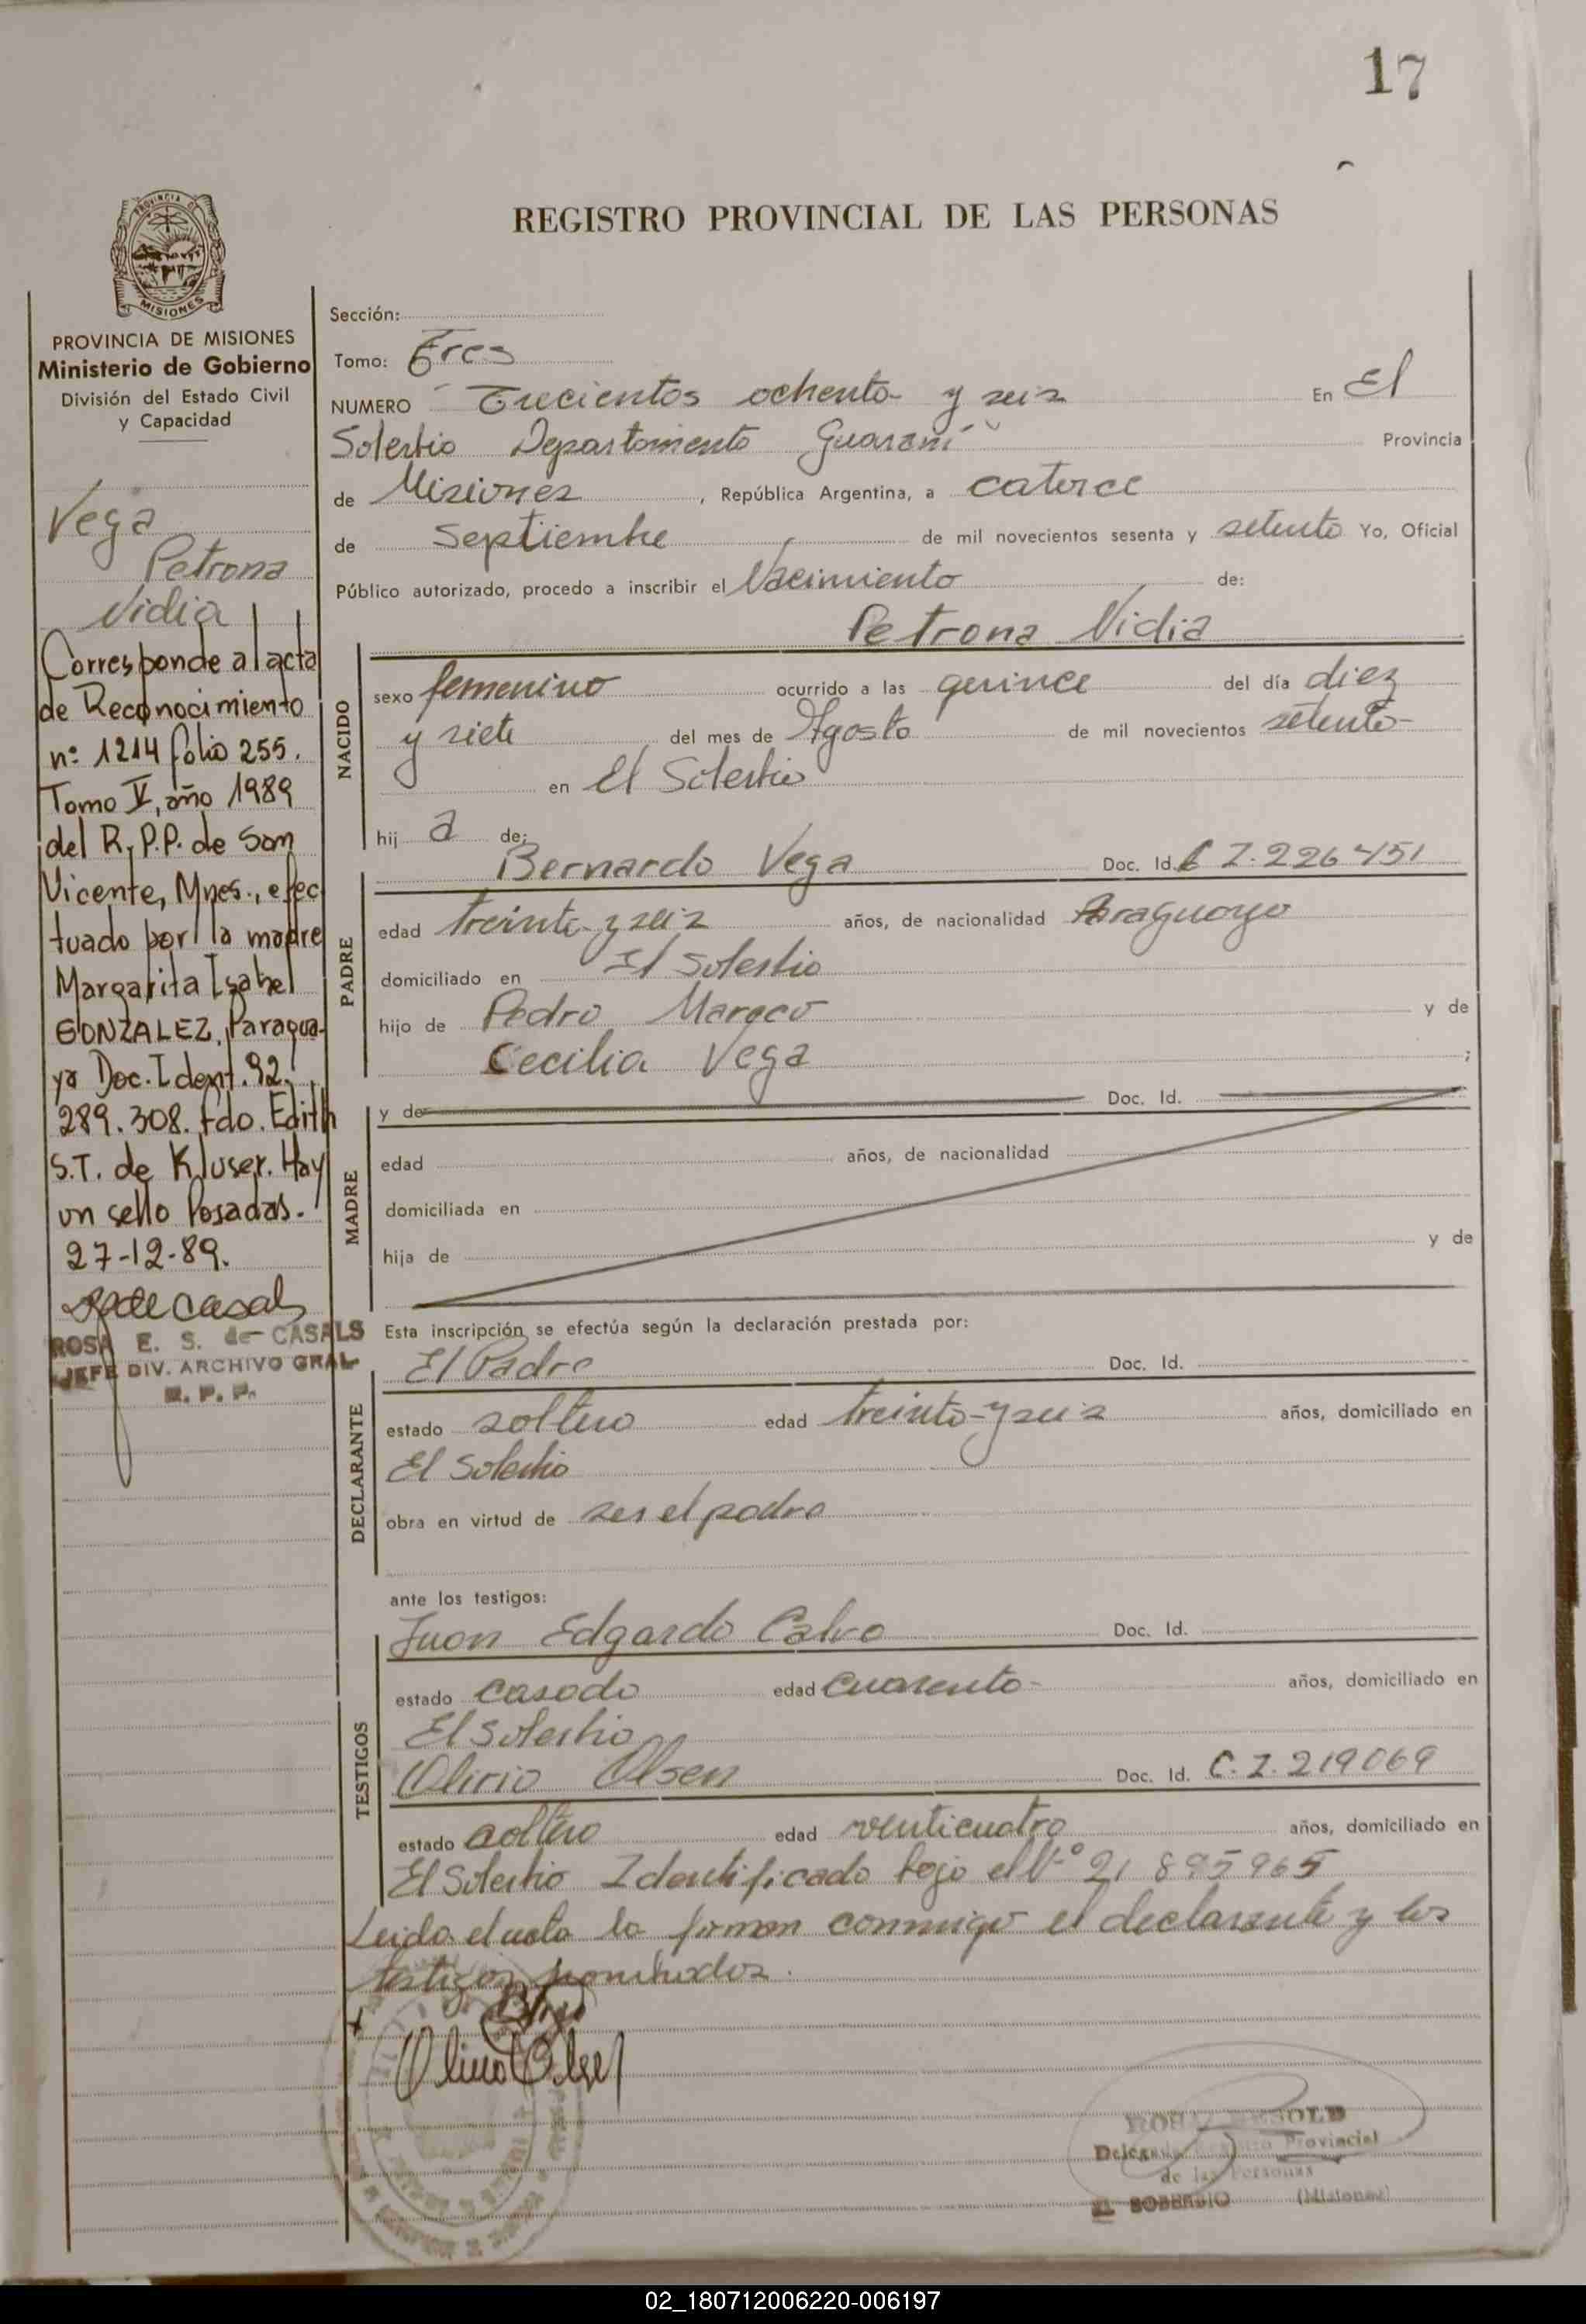 17
REGISTRO PROVINCIAL DE LAS PERSONAS
PROVINCIA DE
MISIONES
PROVINCIA DE MISIONES
Ministerio de Gobierno
División del Estado Civil
y Capacidad
Vega
Petrona
Nidia
Corresponde al acta
de Reconocimiento
nº 1214 folio 255.
Tomo V, año 1989
del R.P.P. de San
Vicente, Mnes., efec
tuado por la madre
Margarita Isabel
GONZALEZ, Paragua-
ya Doc. Ident. 92.
289.308. fdo. Edith
S.T. de Kluser. Hay
un sello Posadas.-
27-12-89.
ROSA E. S. de CASALS
JEFE DIV. ARCHIVO GRAL
R. P. P.
Sección:
Tomo: Tres
NUMERO Trecientos ochenta y seis En El
Soberbio Departamento Guaraní Provincia
de Misiones, República Argentina, a catorce
de Septiembre de mil novecientos sesenta y setenta Yo, Oficial
Público autorizado, procedo a inscribir el Nacimiento de:
Petrona Nidia
NACIDO
sexo femenino ocurrido a las quince del día diez
y siete del mes de Agosto de mil novecientos setenta
en El Soberbio
hij a de:
PADRE
Bernardo Vega Doc. Id. C I. 226451
edad treinta y seis años, de nacionalidad Paraguayo
domiciliado en El Soberbio
hijo de Pedro Mareco y de
Cecilia Vega ;
MADRE
y de Doc. Id.
edad años, de nacionalidad
domiciliada en
hija de y de
Esta inscripción se efectúa según la declaración prestada por:
DECLARANTE
El Padre Doc. Id.
estado soltero edad treinta y seis años, domiciliado en
El Soberbio
obra en virtud de ser el padre
ante los testigos:
TESTIGOS
Juan Edgardo Calvo Doc. Id.
estado casado edad cuarenta años, domiciliado en
El Soberbio
Olirio Olsen Doc. Id. C. I. 219069
estado soltero edad venticuatro años, domiciliado en
El Soberbio Identificado bajo el Nº 21 895965
Leida el acta la firman conmigo el declarante y los
testigos nombrados.
Olirio Olsen
Delegado Registro Provincial
de las Personas
EL SOBERBIO (Misiones)
02_180712006220-006197